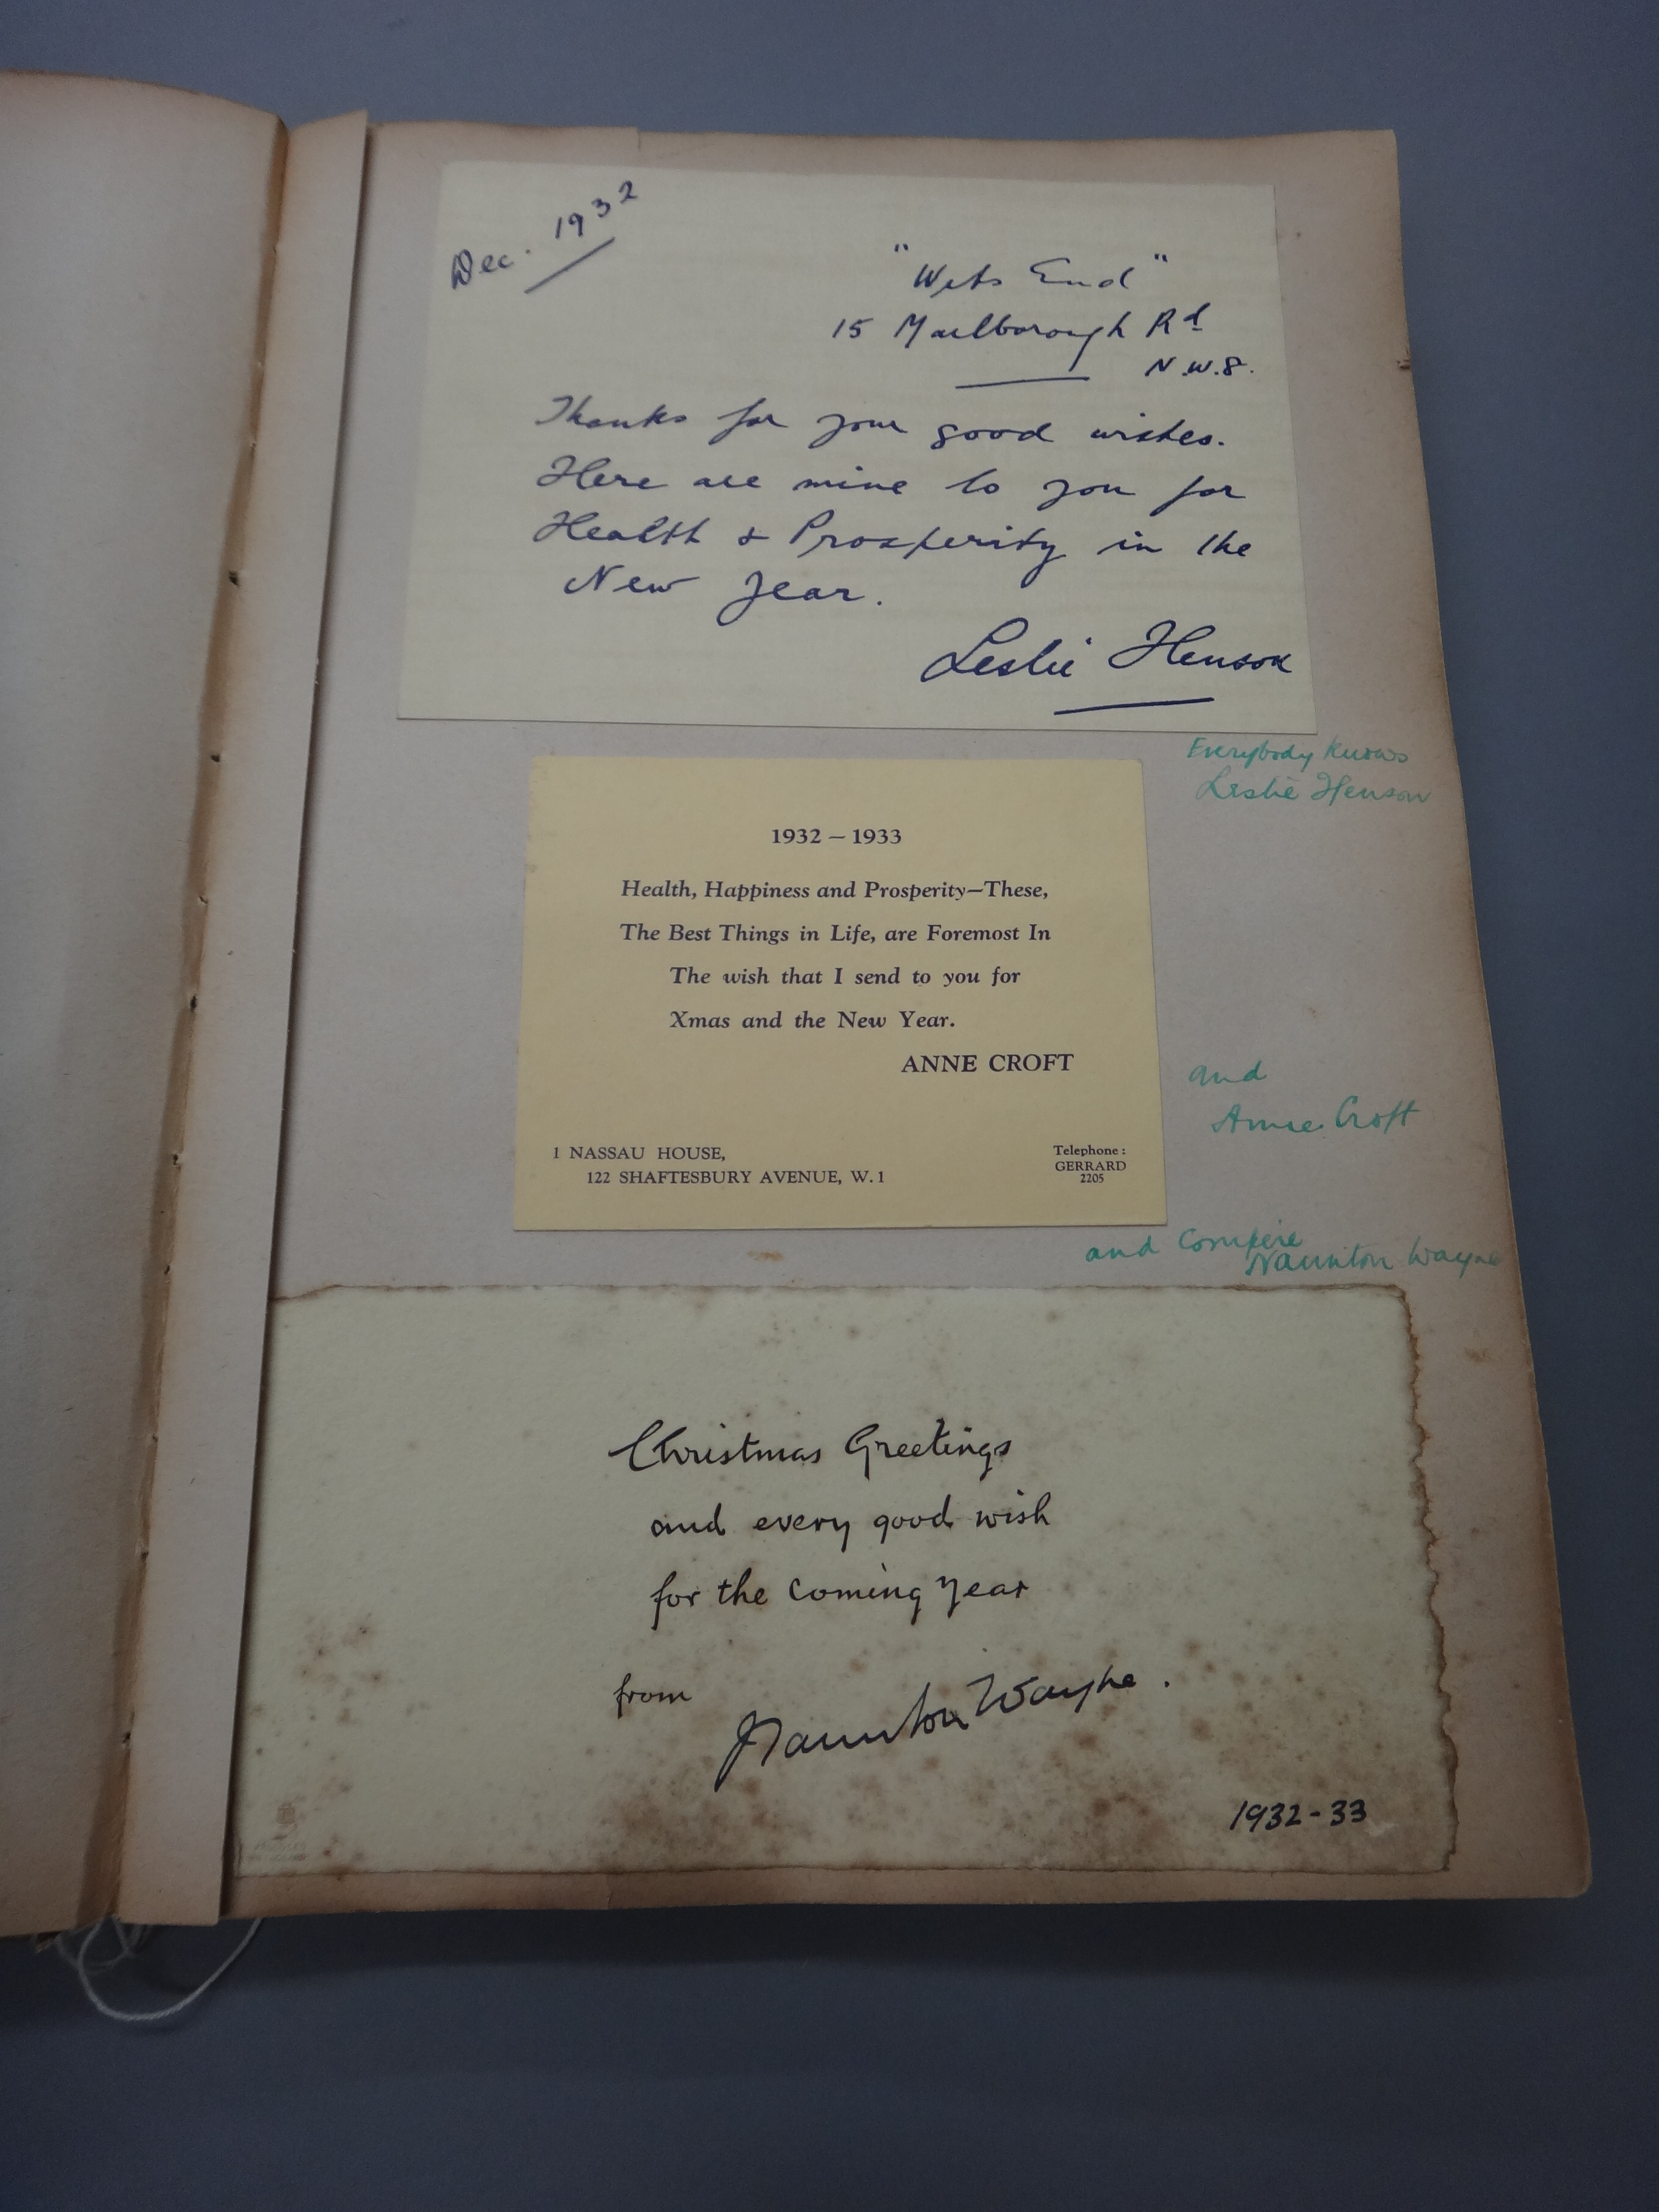 Dec. 1932
"Wits End"
15 Marlborough Rd
N.W.8.
Thanks for your good wishes.
Here are mine to you for
Health & Prosperity in the
New Year.
Leslie Henson
Everybody knows
Leslie Henson
1932 – 1933
Health, Happiness and Prosperity—These,
The Best Things in Life, are Foremost In
The wish that I send to you for
Xmas and the New Year.
ANNE CROFT
1 NASSAU HOUSE,
122 SHAFTESBURY AVENUE, W.1
Telephone :
GERRARD
2205
and
Anne Croft
and Compère
Naunton Wayne
Christmas Greetings
and every good wish
for the coming year
from
Naunton Wayne.
1932-33